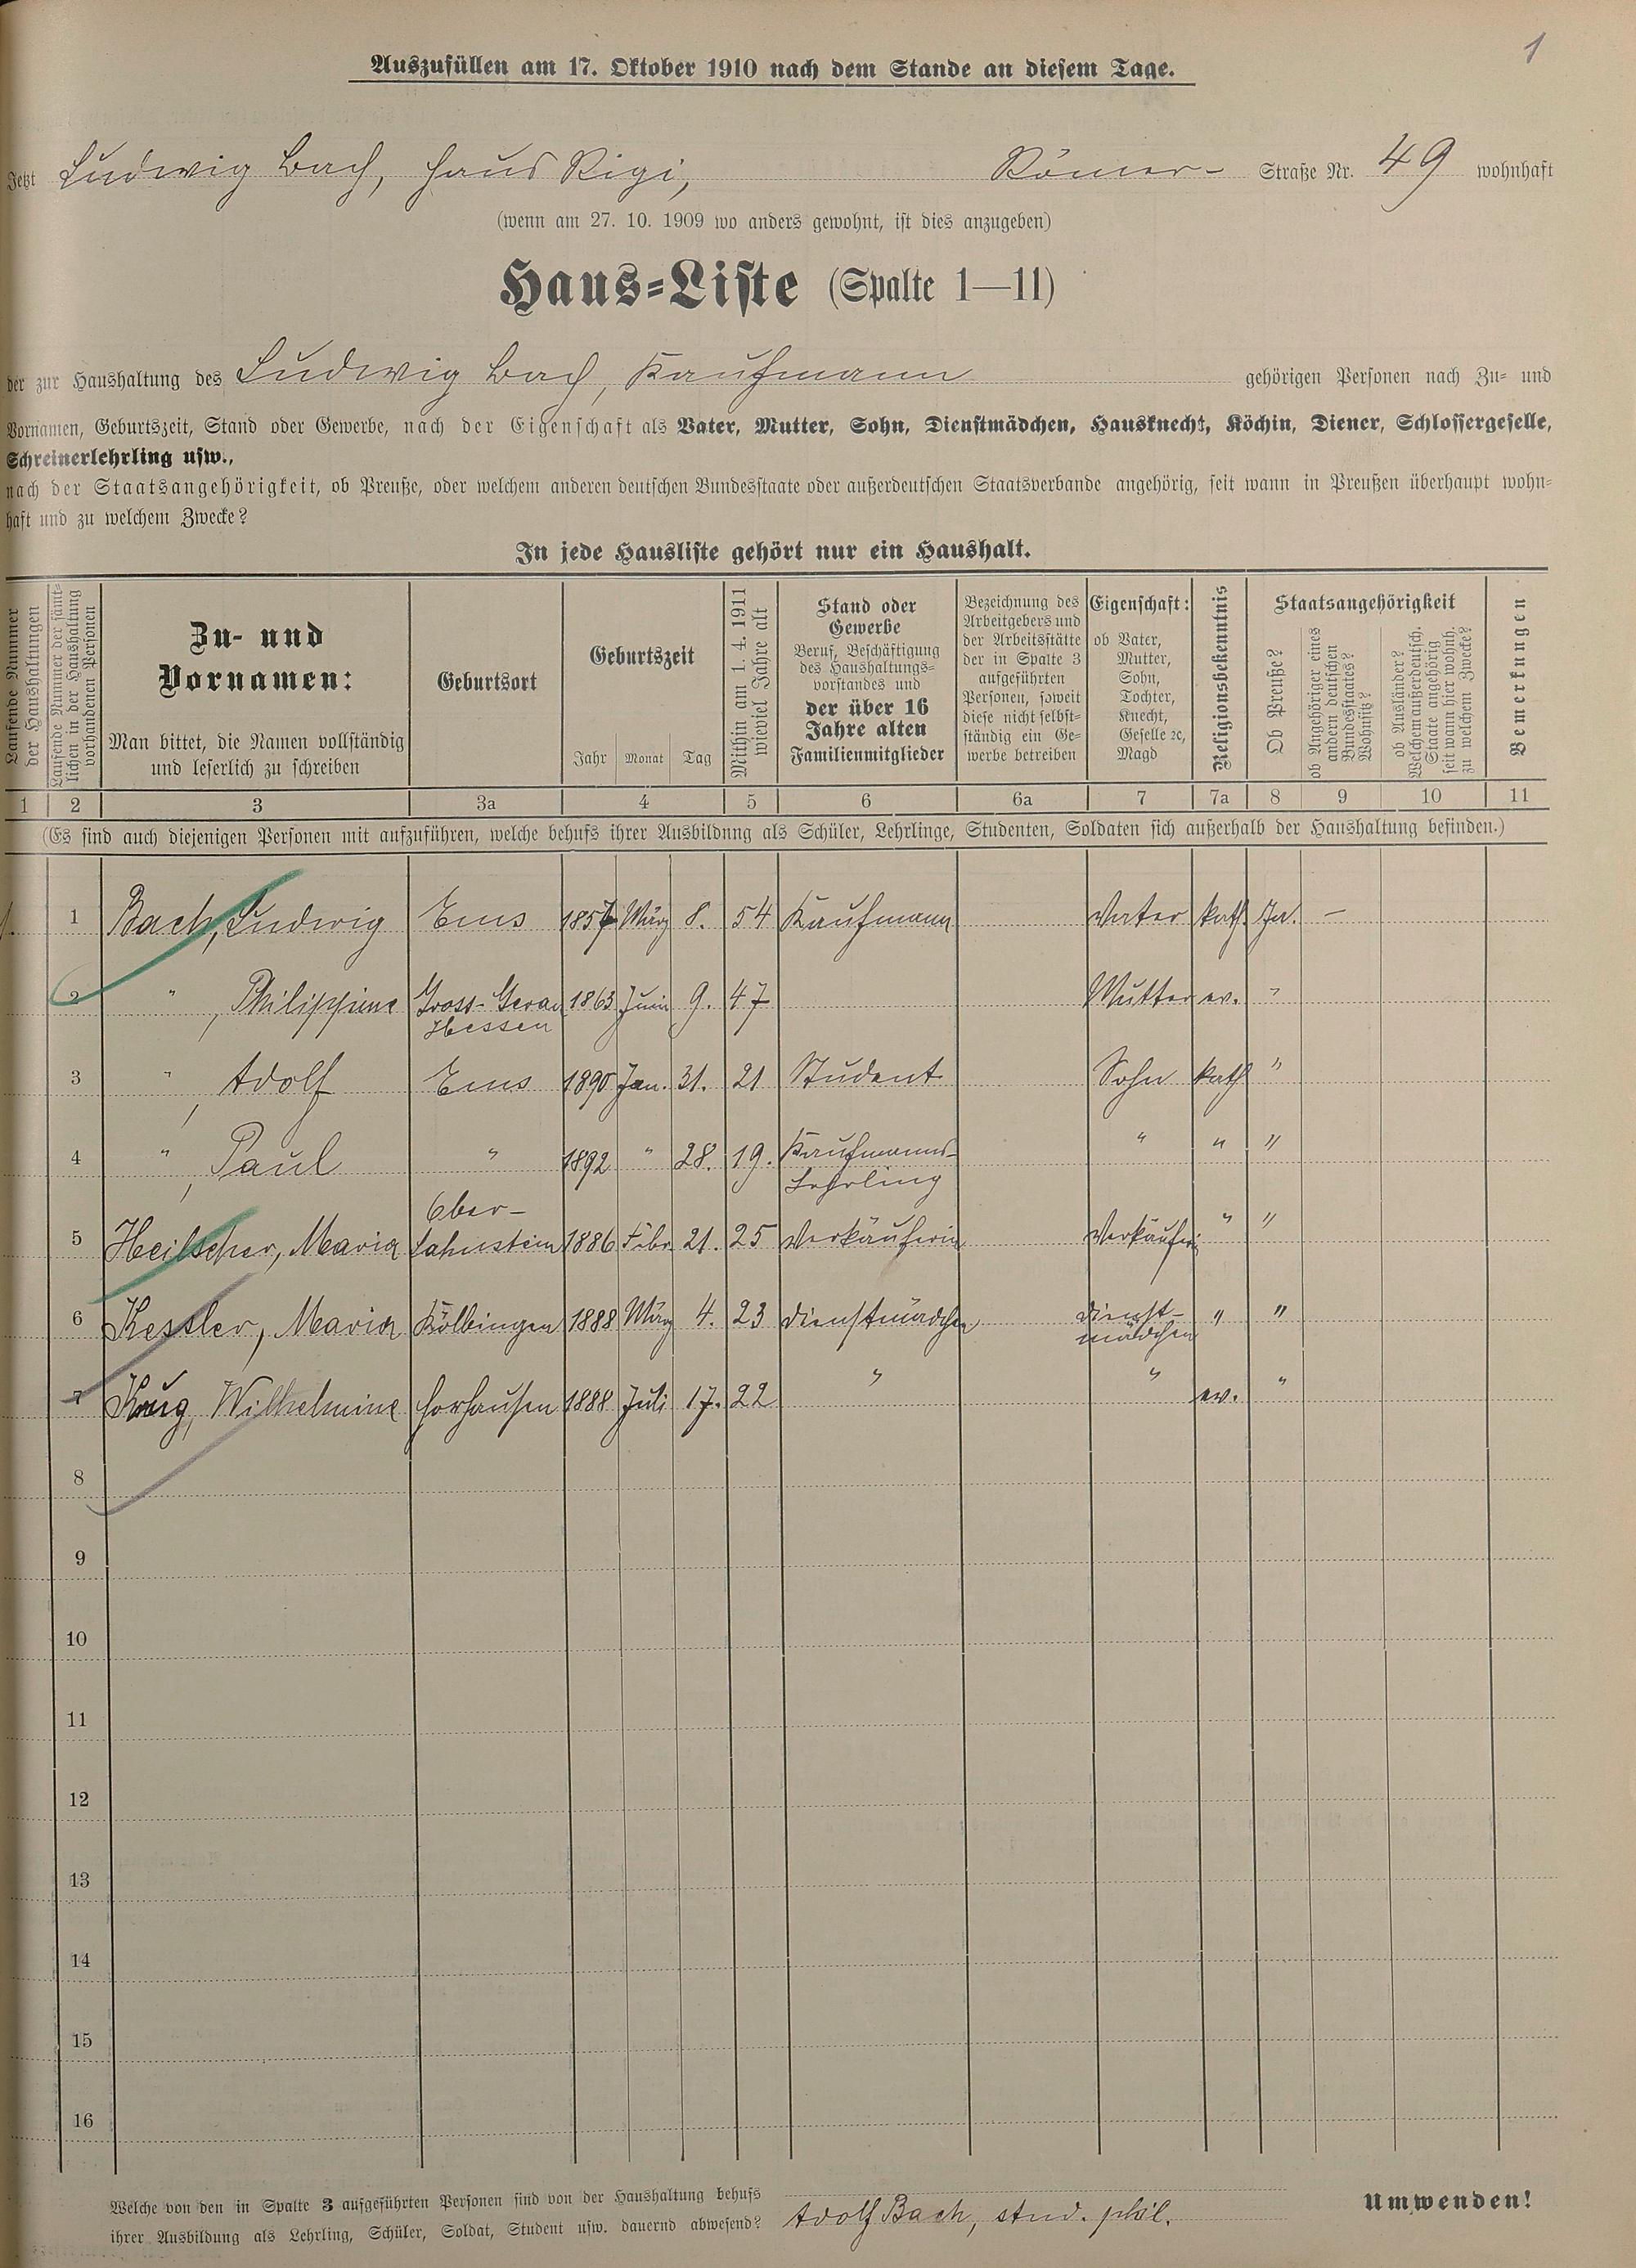 1
Auszufüllen am 17. Oktober 1910 nach dem Stande an diesem Tage.
Jetzt Ludwig Bach, Haus Rigi, Römer- Straße Nr. 49 wohnhaft
(wenn am 27. 10. 1909 wo anders gewohnt, ist dies anzugeben)
Haus-Liste (Spalte 1—11)
der zur Haushaltung des Ludwig Bach, Kaufmann gehörigen Personen nach Zu- und
Vornamen, Geburtszeit, Stand oder Gewerbe, nach der Eigenschaft als Vater, Mutter, Sohn, Dienstmädchen, Hausknecht, Köchin, Diener, Schlossergeselle,
Schreinerlehrling usw.,
nach der Staatsangehörigkeit, ob Preuße, oder welchem anderen deutschen Bundesstaate oder außerdeutschen Staatsverbande angehörig, seit wann in Preußen überhaupt wohn-
haft und zu welchem Zwecke?
In jede Hausliste gehört nur ein Haushalt.
Laufende Nummer
der Haushaltungen
Laufende Nummer der sämt-
lichen in der Haushaltung
vorhandenen Personen
Zu- und
Vornamen:
Man bittet, die Namen vollständig
und leserlich zu schreiben
Geburtsort
Geburtszeit
Jahr Monat Tag
Mithin am 1. 4. 1911
wieviel Jahre alt
Stand oder
Gewerbe
Beruf, Beschäftigung
des Haushaltungs-
vorstandes und
der über 16
Jahre alten
Familienmitglieder
Bezeichnung des
Arbeitgebers und
der Arbeitsstätte
der in Spalte 3
aufgeführten
Personen, soweit
diese nicht selbst-
ständig ein Ge-
werbe betreiben
Eigenschaft:
ob Vater,
Mutter,
Sohn,
Tochter,
Knecht,
Geselle ꝛc,
Magd
Religionsbekenntnis
Staatsangehörigkeit
Ob Preuße?
ob Angehöriger eines
andern deutschen
Bundesstaates?
Wohnsitz?
ob Ausländer?
Welchem außerdeutsch.
Staate angehörig
seit wann hier wohnh.
zu welchem Zwecke?
Bemerkungen
1 2 3 3a 4 5 6 6a 7 7a 8 9 10 11
(Es sind auch diejenigen Personen mit aufzuführen, welche behufs ihrer Ausbildung als Schüler, Lehrlinge, Studenten, Soldaten sich außerhalb der Haushaltung befinden.)
1. 1 Bach, Ludwig Ems 1857 März 8. 54 Kaufmann Vater kath. Ja. —
2 " , Philippine Gross-Gerau 1863 Juni 9. 47 Mutter ev. "
Hessen
3 " , Adolf Ems 1890 Jan. 31. 21 Student Sohn kath "
4 " , Paul " 1892 " 28. 19. Kaufmanns- " " "
Lehrling
Ober-
5 Heilscher, Maria Lahnstein 1886 Febr. 21. 25 Verkäuferin Verkäuferin " "
6 Kessler, Maria Kölbingen 1888 März 4. 23 Dienstmädchen Dienst- " "
mädchen
7 Krug, Wilhelmine Horhausen 1888 Juli 17. 22 " " ev. "
8
9
10
11
12
13
14
15
16
Welche von den in Spalte 3 aufgeführten Personen sind von der Haushaltung behufs
ihrer Ausbildung als Lehrling, Schüler, Soldat, Student usw. dauernd abwesend? Adolf Bach, stud. phil.
Umwenden!